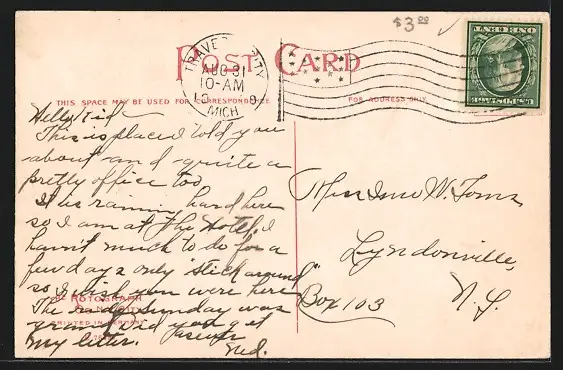 $3.00
POST CARD
TRAVERSE CITY
AUG 31
10-AM
MICH
ONE CENT
U.S. POSTAGE
THIS SPACE MAY BE USED FOR CORRESPONDENCE
FOR ADDRESS ONLY
Hello Kid -
This is place I told you
about and quite a
pretty office too
It is raining hard here
so I am at the Hotel. I
haven't much to do for a
few days only "stick around"
so I wish you were here
The Sunday was
did you get
my letter. as ever
Ned.
W.
Lyndonville,
Box 103
N. Y.
ROTOGRAPH
PRINTED IN GERMANY